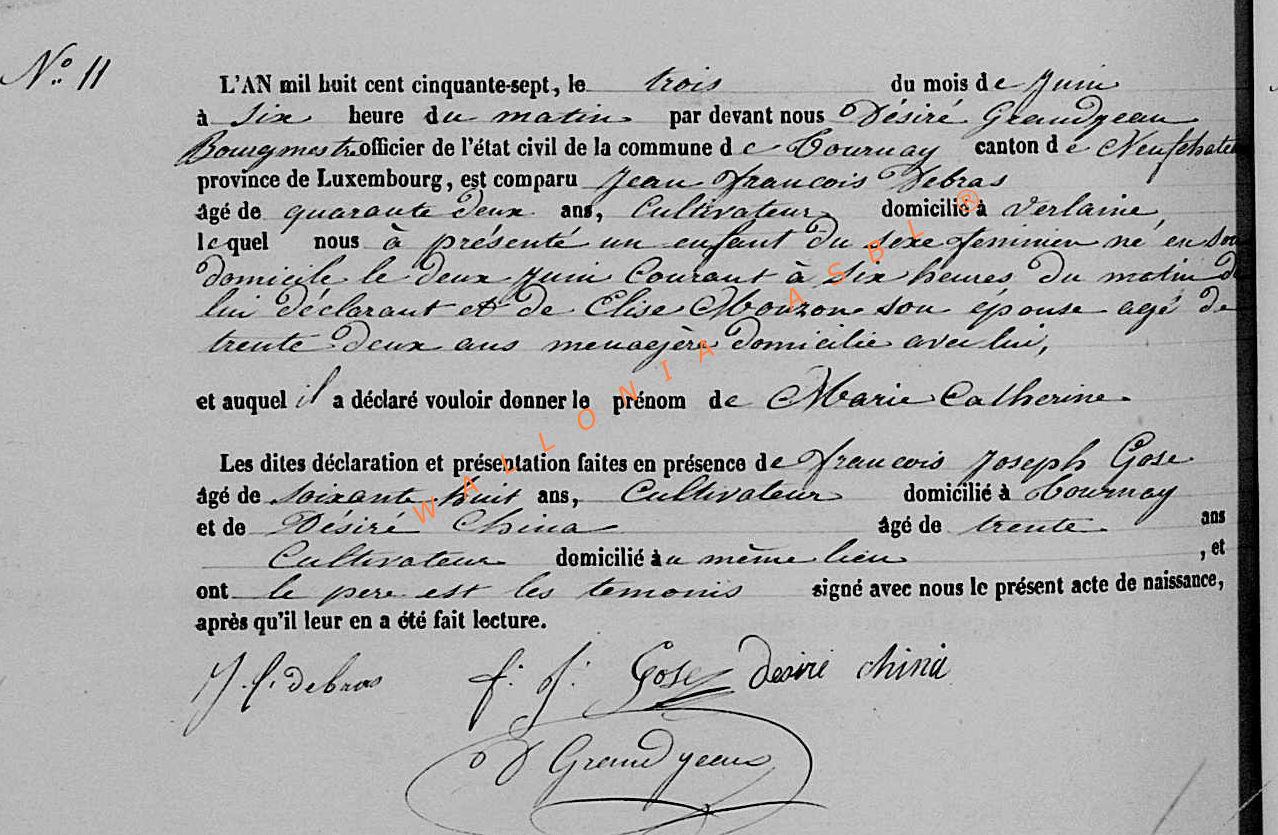 N° 11
L'AN mil huit cent cinquante-sept, le trois du mois de Juin
à six heure du matin par devant nous Désiré Grandjean
Bourgmestre officier de l'état civil de la commune de Tournay canton de Neufchate
province de Luxembourg, est comparu Jean françois Debras
âgé de quarante deux ans, Cultivateur domicilié à Verlaine,
lequel nous à présenté un enfant du sexe feminien né en son
domicile le deux Juin Courant à six heures du matin de
lui déclarant et de Elise Mouzon son épouse agé de
trente deux ans menagère domicilie avec lui,
et auquel il a déclaré vouloir donner le prénom de Marie Catherine
Les dites déclaration et présentation faites en présence de françois Joseph Gose
âgé de soixante huit ans, Cultivateur domicilié à Tournay
et de Désiré China âgé de trente ans
Cultivateur domicilié au même lieu , et
ont le pere est les temoins signé avec nous le présent acte de naissance,
après qu'il leur en a été fait lecture.
J. f. debras f. J. Gose Desiré China
D Grandjean
WALLONIA ASBL ®